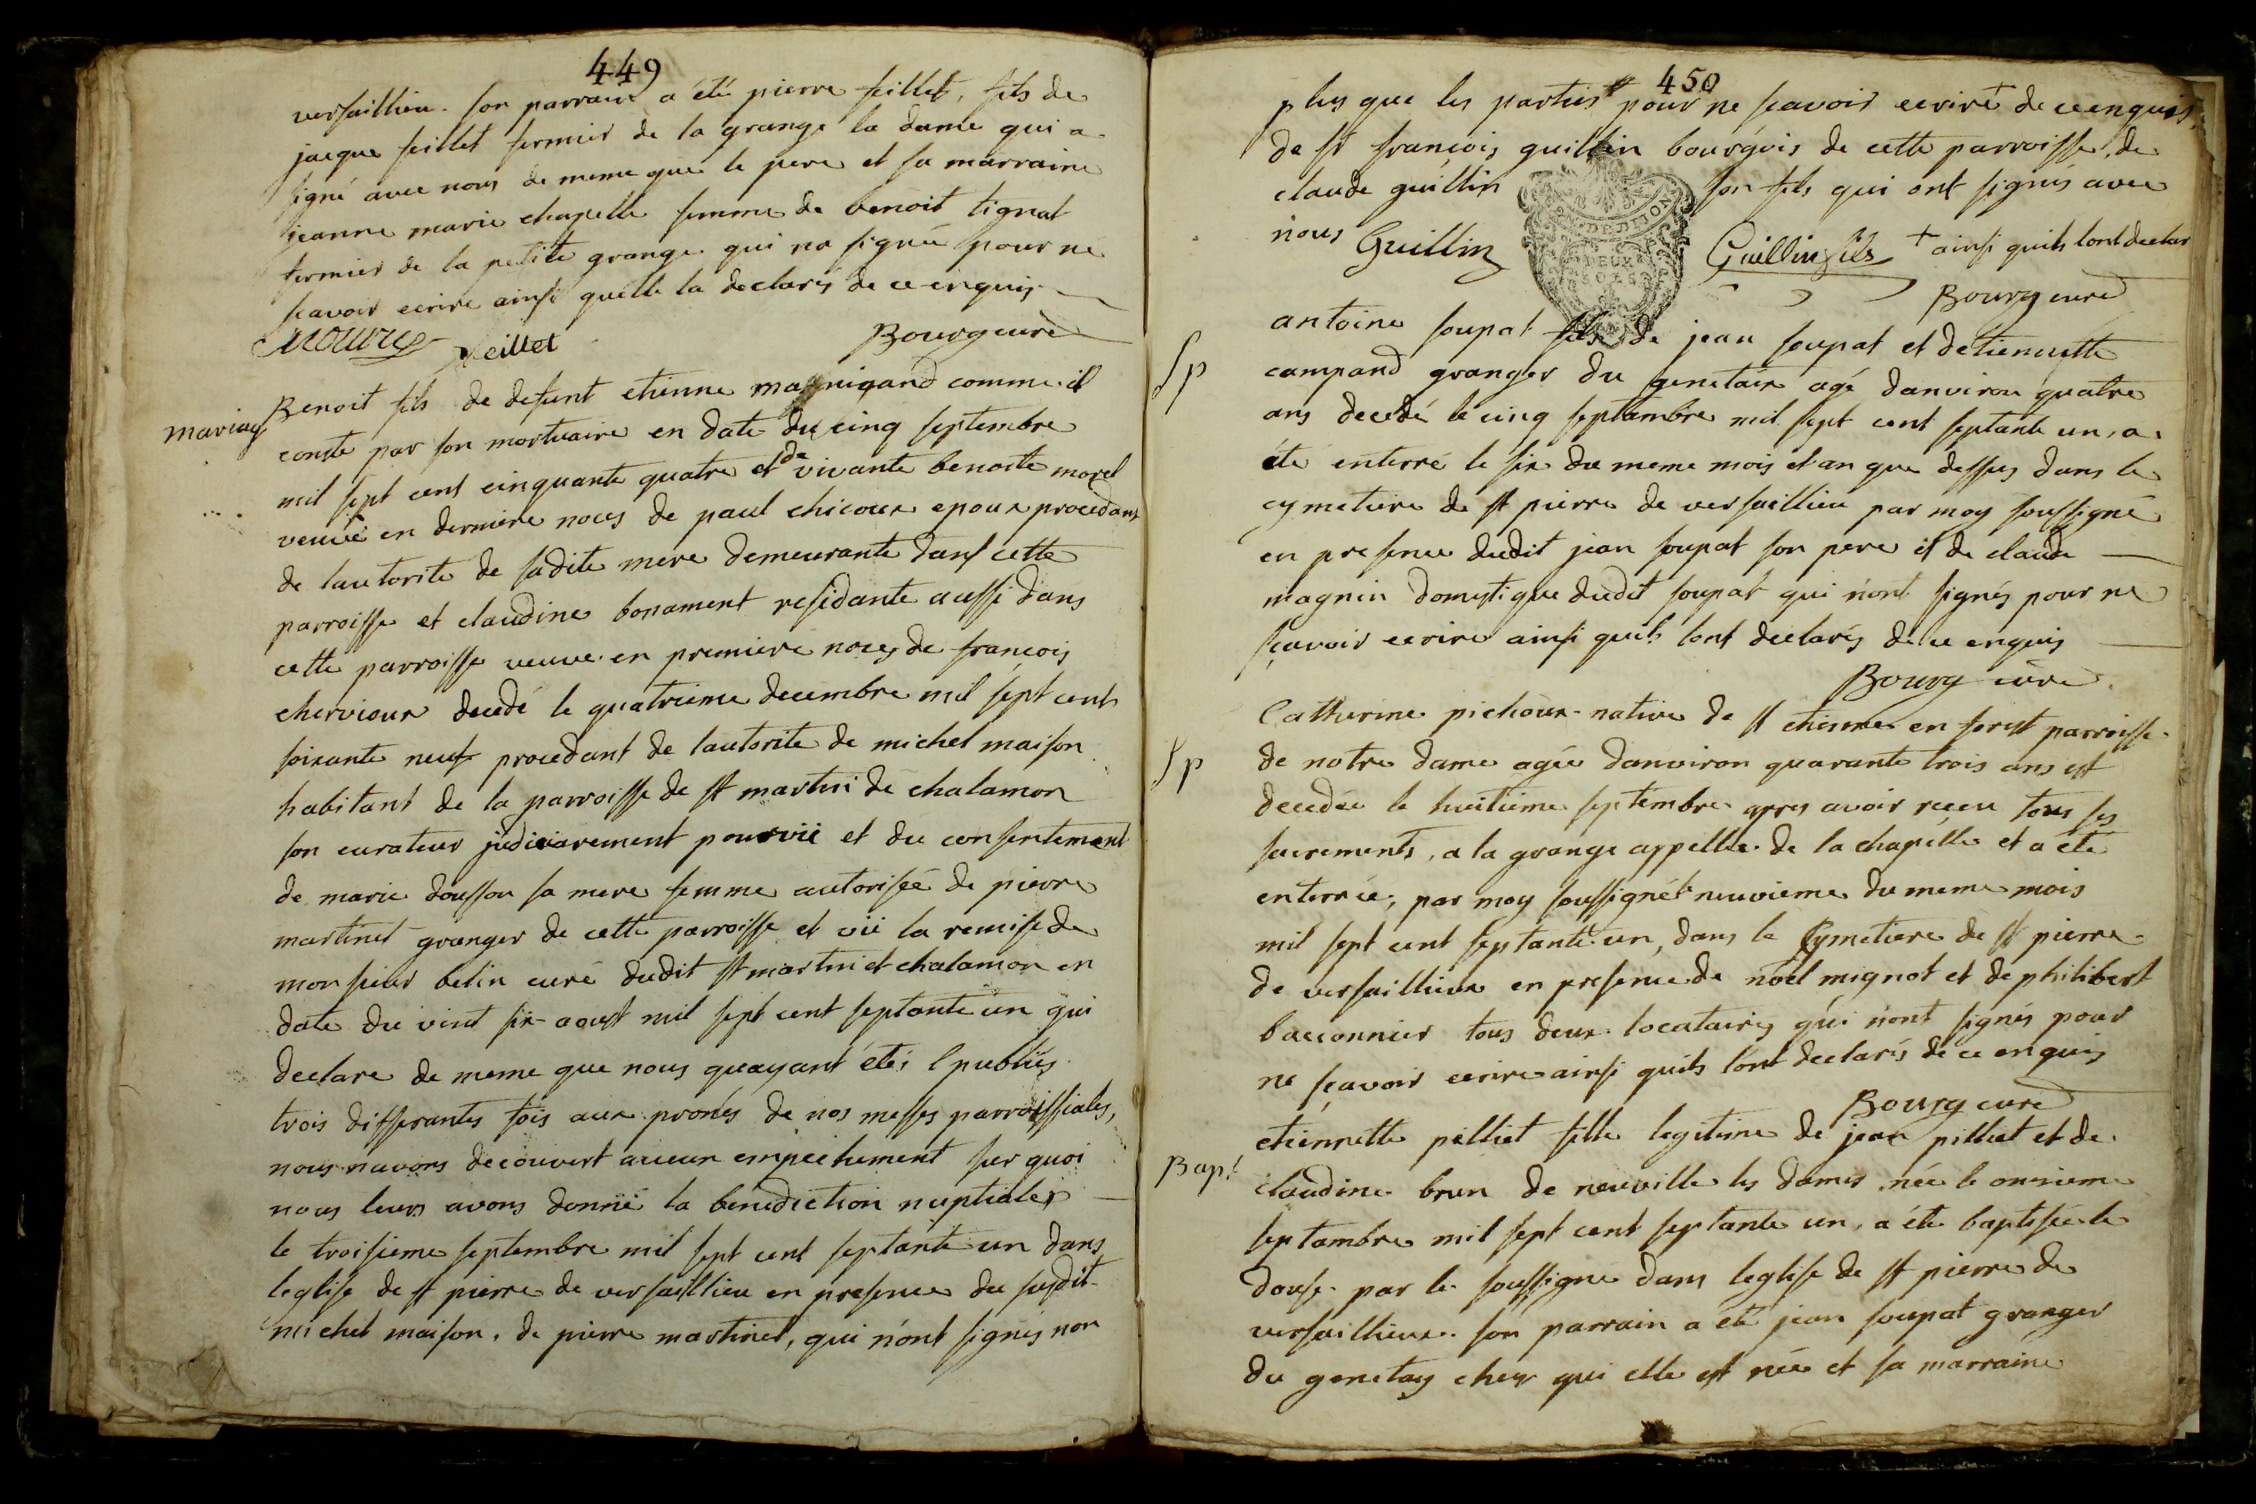 449
versaillieu. son parrain a été pierre feillet, fils de
jacque feillet fermier de la grange la dame qui a
signé avec nous de meme que le pere et sa marraine
jeanne marie chapelle femme de benoit tignat
fermier de la petite grange qui na signée pour ne
scavoir ecrire ainsi quelle la declaré de ce enquis
feillet Bourg curé
mariag
Benoit fils de defunt etienne magnigand comme il
conste par son mortuaire en date du cinq septembre
mil sept cent cinquante quatre et de vivante benoite morel
veuve en derniere noces de paul chicoux epoux procedant
de lautorite de sadite mere demeurante dans cette
parroisse et claudine bonament residante aussi dans
cette parroisse veuve en premiere noces de françois
chervioux decedé le quatrieme decembre mil sept cent
soixante neuf procedant de lautorite de michel maison
habitant de la parroisse de st martin de chalamon
son curateur judiciairement pourvû et du consentement
de marie dousson sa mere femme autorisée de pierre
martinet granger de cette parroisse et vû la remise de
monsieur belin curé dudit st martin et chalamon en
date du vint six aoust mil sept cent septante un qui
declare de meme que nous quayant été publiés
trois differantes fois aux prônes de nos messes parroissiales,
nous navons decouvert aucun empechement sur quoi
nous leurs avons donné la benediction nuptiale
le troisieme septembre mil sept cent septante un dans
leglise de st pierre de versaillieu en presence du susdit
michel maison, de pierre martinet, qui n'ont signés non
450
plus que les parties pour ne scavoir ecrire + de ce enquis,
de sr françois guillin bourgois de cette parroisse, de
claude guillin son fils qui ont signés avec
nous Guillin Guillin fils + ainsi quils lont declar
Bourg curé
DE DIJON
DEUX
Sp
antoine soupat fils de jean soupat et detiennette
campand granger du genetair agé danviron quatre
ans decedé le cinq septambre mil sept cent septante un, a
été enterré le six du meme mois et an que dessus dans le
cymetiere de st pierre de versaillieu par moy soussigné
en presence dudit jean soupat son pere et de claude
magnin domestique dudit soupat qui n'ont signés pour ne
sçavoir ecrire ainsi quils lont declarés de ce enquis
Bourg curé
Sp
Catherine pichoux native de st etienne en forest parroisse
de notre dame agée danviron quarante trois ans est
decedée le huitieme septembre apres avoir receu tous ses
sacrements, a la grange appellée de la chapelle et a été
enterrée, par moy soussigné le neuvieme du meme mois
mil sept cent septante un, dans le Cymetiere de st pierre
de versaillieux en presence de noel mignot et de philibert
bacconnier tous deux locataires qui n'ont signés pour
ne sçavoir ecrire ainsi quils lont declarés de ce enquis
Bourg curé
Bapt
etiennette pilliet fille legitime de jean pilliet et de
claudine brun de neuville les dames née le onzieme
septambre mil sept cent septante un, a été baptisée le
douse par le soussigné dans leglise de st pierre de
versaillieux. son parrain a été jean soupat granger
du genetay chez qui elle est née et sa marraine